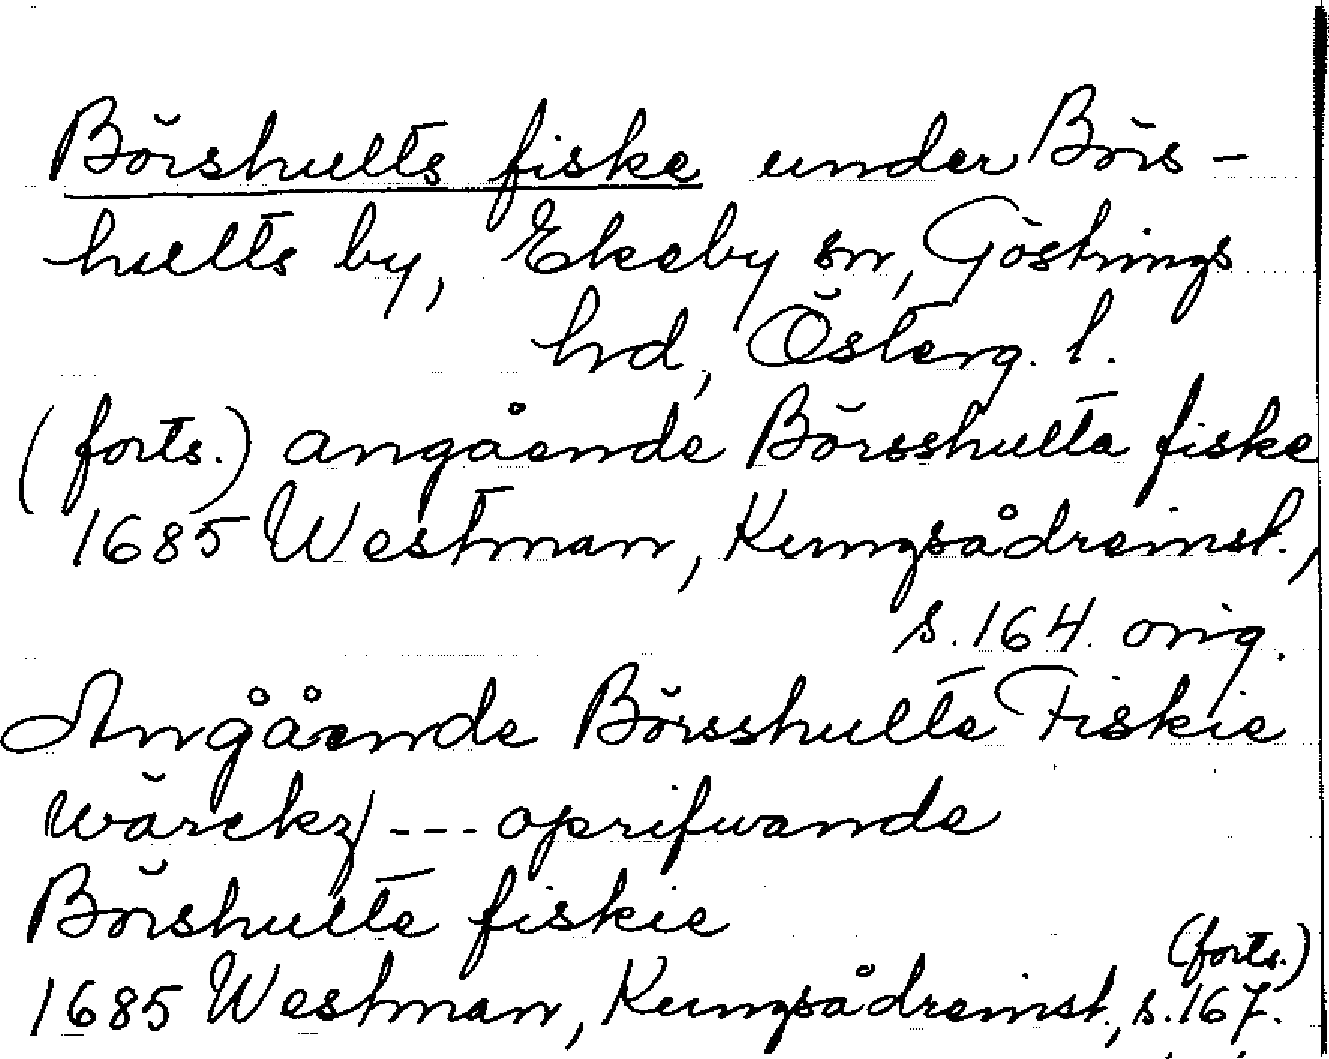 Börshults fiske under Börs-
hults by, Ekeby sn, Göstrings
hd, Österg. l.
(forts.) angående Börsshulta fiske
1685 Westman, Kungsådreinst.,
s. 164. orig.
Angående Börsshulte Fiskie
wärckz/ --- oprifwande
Börshulte fiskie
(forts.)
1685 Westman, Kungsådreinst., s. 167.